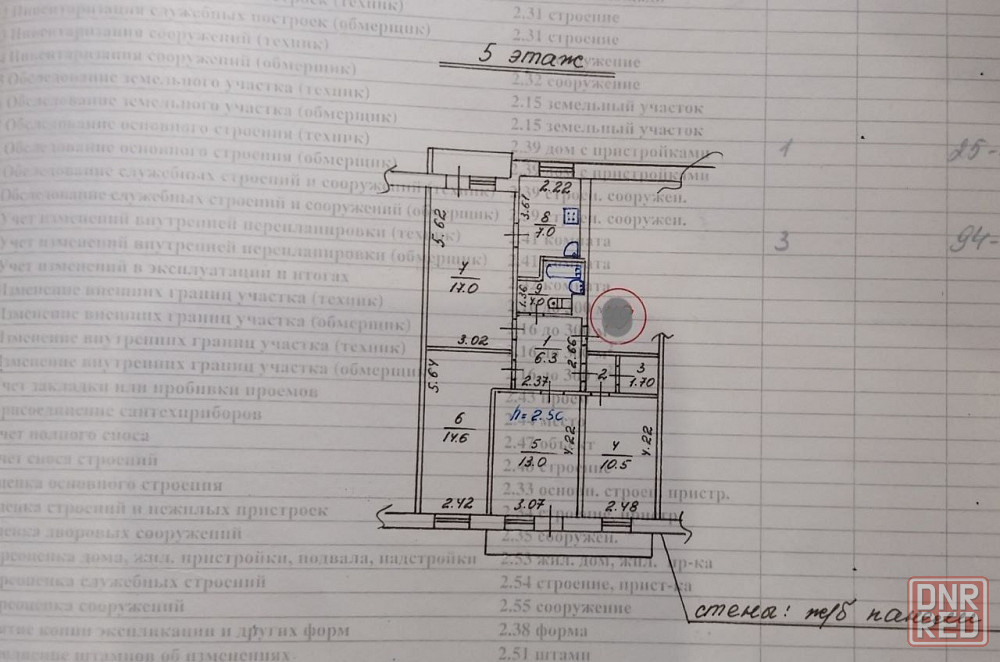 5 этаж
Инвентаризация служебных построек (обмерщик) 2.31 строение
Инвентаризация сооружений (техник) 2.31 строение
Инвентаризация сооружений (обмерщик)
Обследование земельного участка (техник) 2.32 сооружение
Обследование земельного участка (обмерщик) 2.15 земельный участок
Обследование основного строения (техник) 2.15 земельный участок
Обследование основного строения (обмерщик) 2.39 дом с пристройками 1 25-
Обследование служебных строений и сооружений (техник) пристройками
Обследование служебных строений и сооружений (обмерщик) сооружен.
Учет изменений внутренней перепланировки (техник) сооружен.
учет изменений внутренней перепланировки (обмерщик) 2.41 комната 3 94-
Учет изменений в эксплуатации и итогах
Изменение внешних границ участка (техник)
Изменение внешних границ участка (обмерщик)
Изменение внутренних границ участка (техник)
Изменение внутренних границ участка (обмерщик)
чет закладки или пробивки проемов
присоединение сантехприборов
чет полного сноса
чет сноса строений
ценка основного строения 2.33 основн. строен. пристр.
ценка строений и нежилых пристроек
ценка дворовых сооружений 2.35 сооружен.
реоценка дома, жил. пристройки, подвала, надстройки 2.53 жил. дом, жил. пр-ка
реоценка служебных строений 2.54 строение, прист-ка
реоценка сооружений 2.55 сооружение
копии экспликации и других форм 2.38 форма
штампов об изменениях 2.51 штамп
2.22
3.61
8
7.0
5.62
7
17.0
1.36
9
3.02
1
6.3
2.66
2.37
2
3
1.70
5.64
h=2.50
6
14.6
5
13.0
4.22
4
10.5
4.22
2.42
3.07
2.48
стены: ж/б панели
DNR
RED